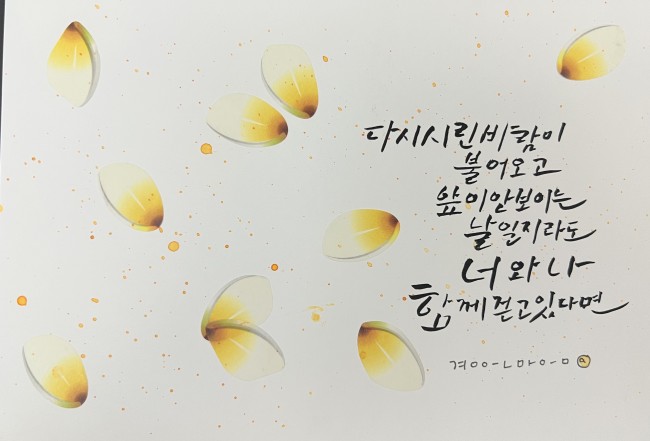 다시 시린 바람이
불어오고
앞이 안보이는
날일지라도
너와 나
함께 걷고 있다면